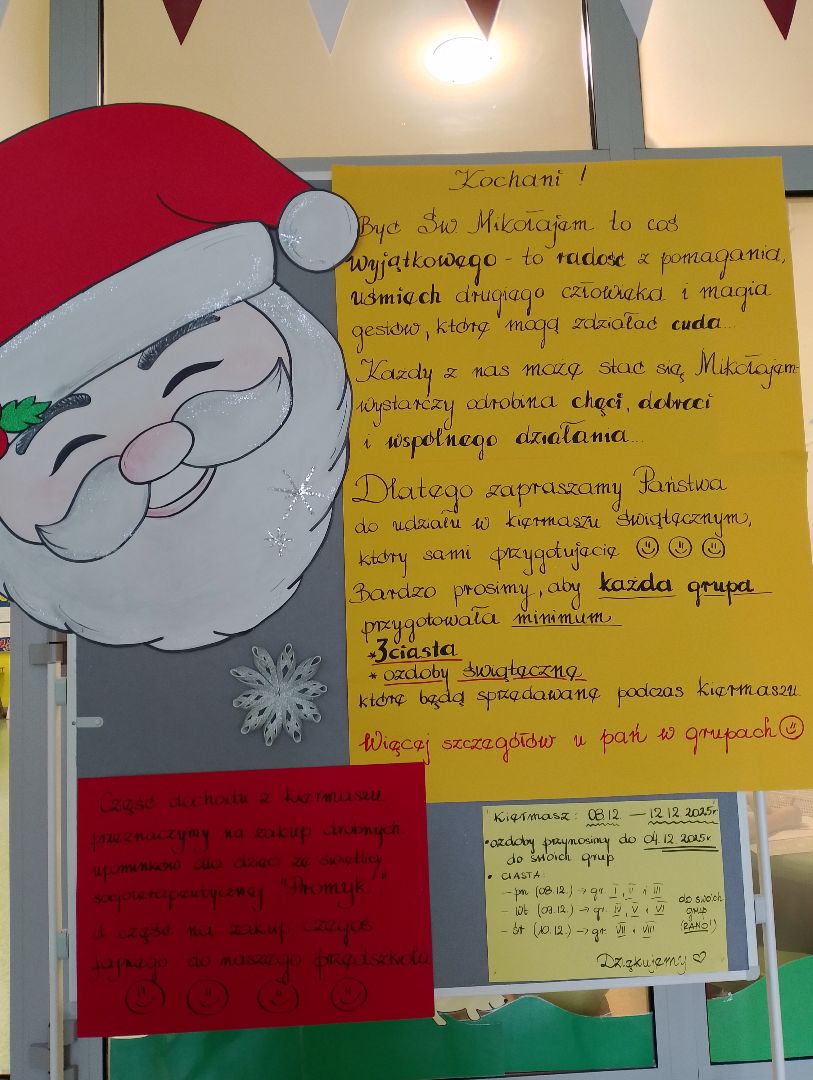 Kochani !
Być Św Mikołajem to coś
wyjątkowego - to radość z pomagania,
uśmiech drugiego człowieka i magia
gestów, które mogą zdziałać cuda...
Każdy z nas może stać się Mikołajem-
wystarczy odrobina chęci, dobroci
i wspólnego działania...
Dlatego zapraszamy Państwa
do udziału w kiermaszu świątecznym,
który sami przygotujecie ☺ ☺ ☺
Bardzo prosimy, aby każda grupa
przygotowała minimum
* 3 ciasta
* ozdoby świąteczne
które będą sprzedawane podczas kiermaszu.
Więcej szczegółów u pań w grupach ☺
Część dochodu z kiermaszu
przeznaczymy na zakup drobnych
upominków dla dzieci ze świetlicy
socjoterapeutycznej "Promyk"
a część na zakup czegoś
fajnego do naszego przedszkola
☺ ☺ ☺ ☺
Kiermasz: 08.12. — 12.12.2025r
• ozdoby przynosimy do 04.12.2025r
do swoich grup
• CIASTA:
- pn (08.12.) → gr. I, II i III
- wt (09.12.) → gr. IV, V i VI
- śr (10.12.) → gr. VII i VIII
do swoich
grup
(RANO!)
Dziękujemy ♡